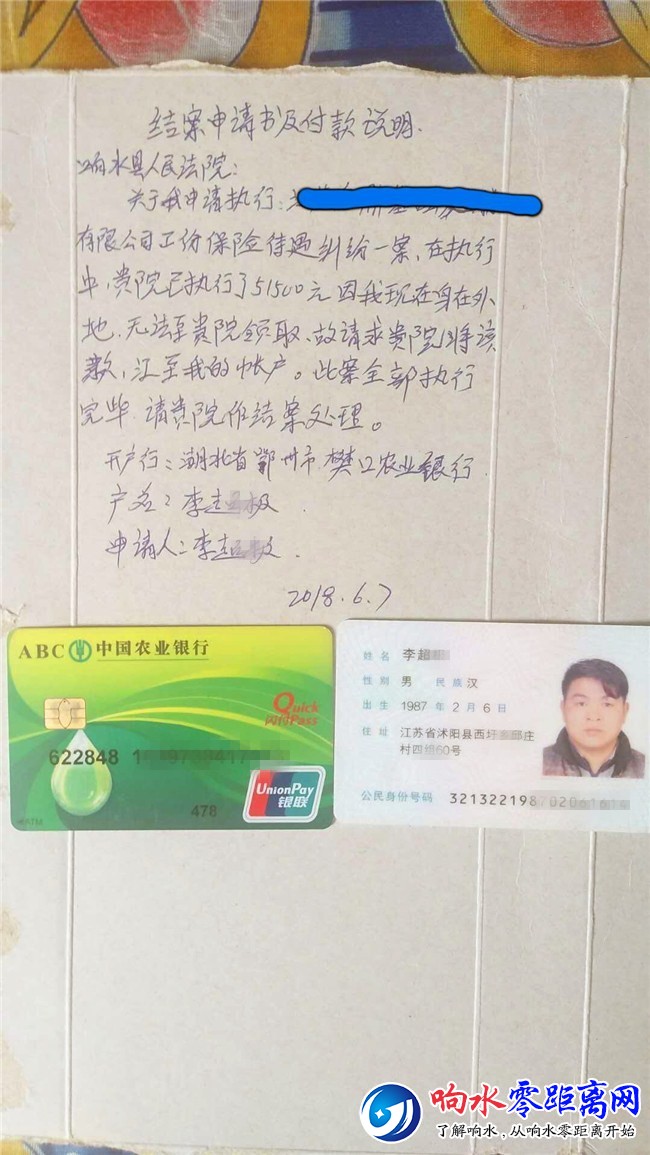 结案申请书及付款说明.
响水县人民法院:
关于我申请执行
有限公司工伤保险待遇纠纷一案,在执行
中,贵院已执行了51500元因我现在身在外
地.无法至贵院领取、故请求贵院将该
款,汇至我的帐户。此案全部执行
完毕.请贵院作结案处理。
开户行:湖北省鄂州市樊口农业银行.
户名:李
申请人:李
2018.6.7
ABC 中国农业银行
Quick
闪付Pass
622848 1
UnionPay
银联
478
姓名 李超
性别 男 民族 汉
出生 1987 年 2 月 6 日
住址 江苏省沭阳县西圩 庄
村四组60号
公民身份号码 321322198
响水零距离网
了解响水,从响水零距离开始